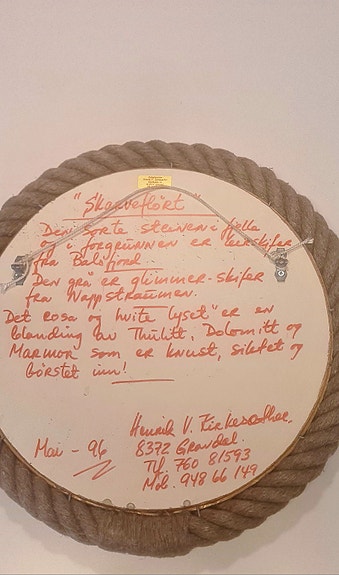 "Skarveflört"
Den sorte steinen i fjella
og i forgrunnen er leirskifer
fra Balsfjord
Den grå er glimmer-skifer
fra Nappstraumen.
Det rosa og hvite lyset" er en
blanding av Thulitt, Dolomitt og
Marmor som er knust, siktet og
börstet inn!
Henrik V.
Mai - 96
8372 Gravdal.
Tlf. 760 81593
Mob. 948 66 149